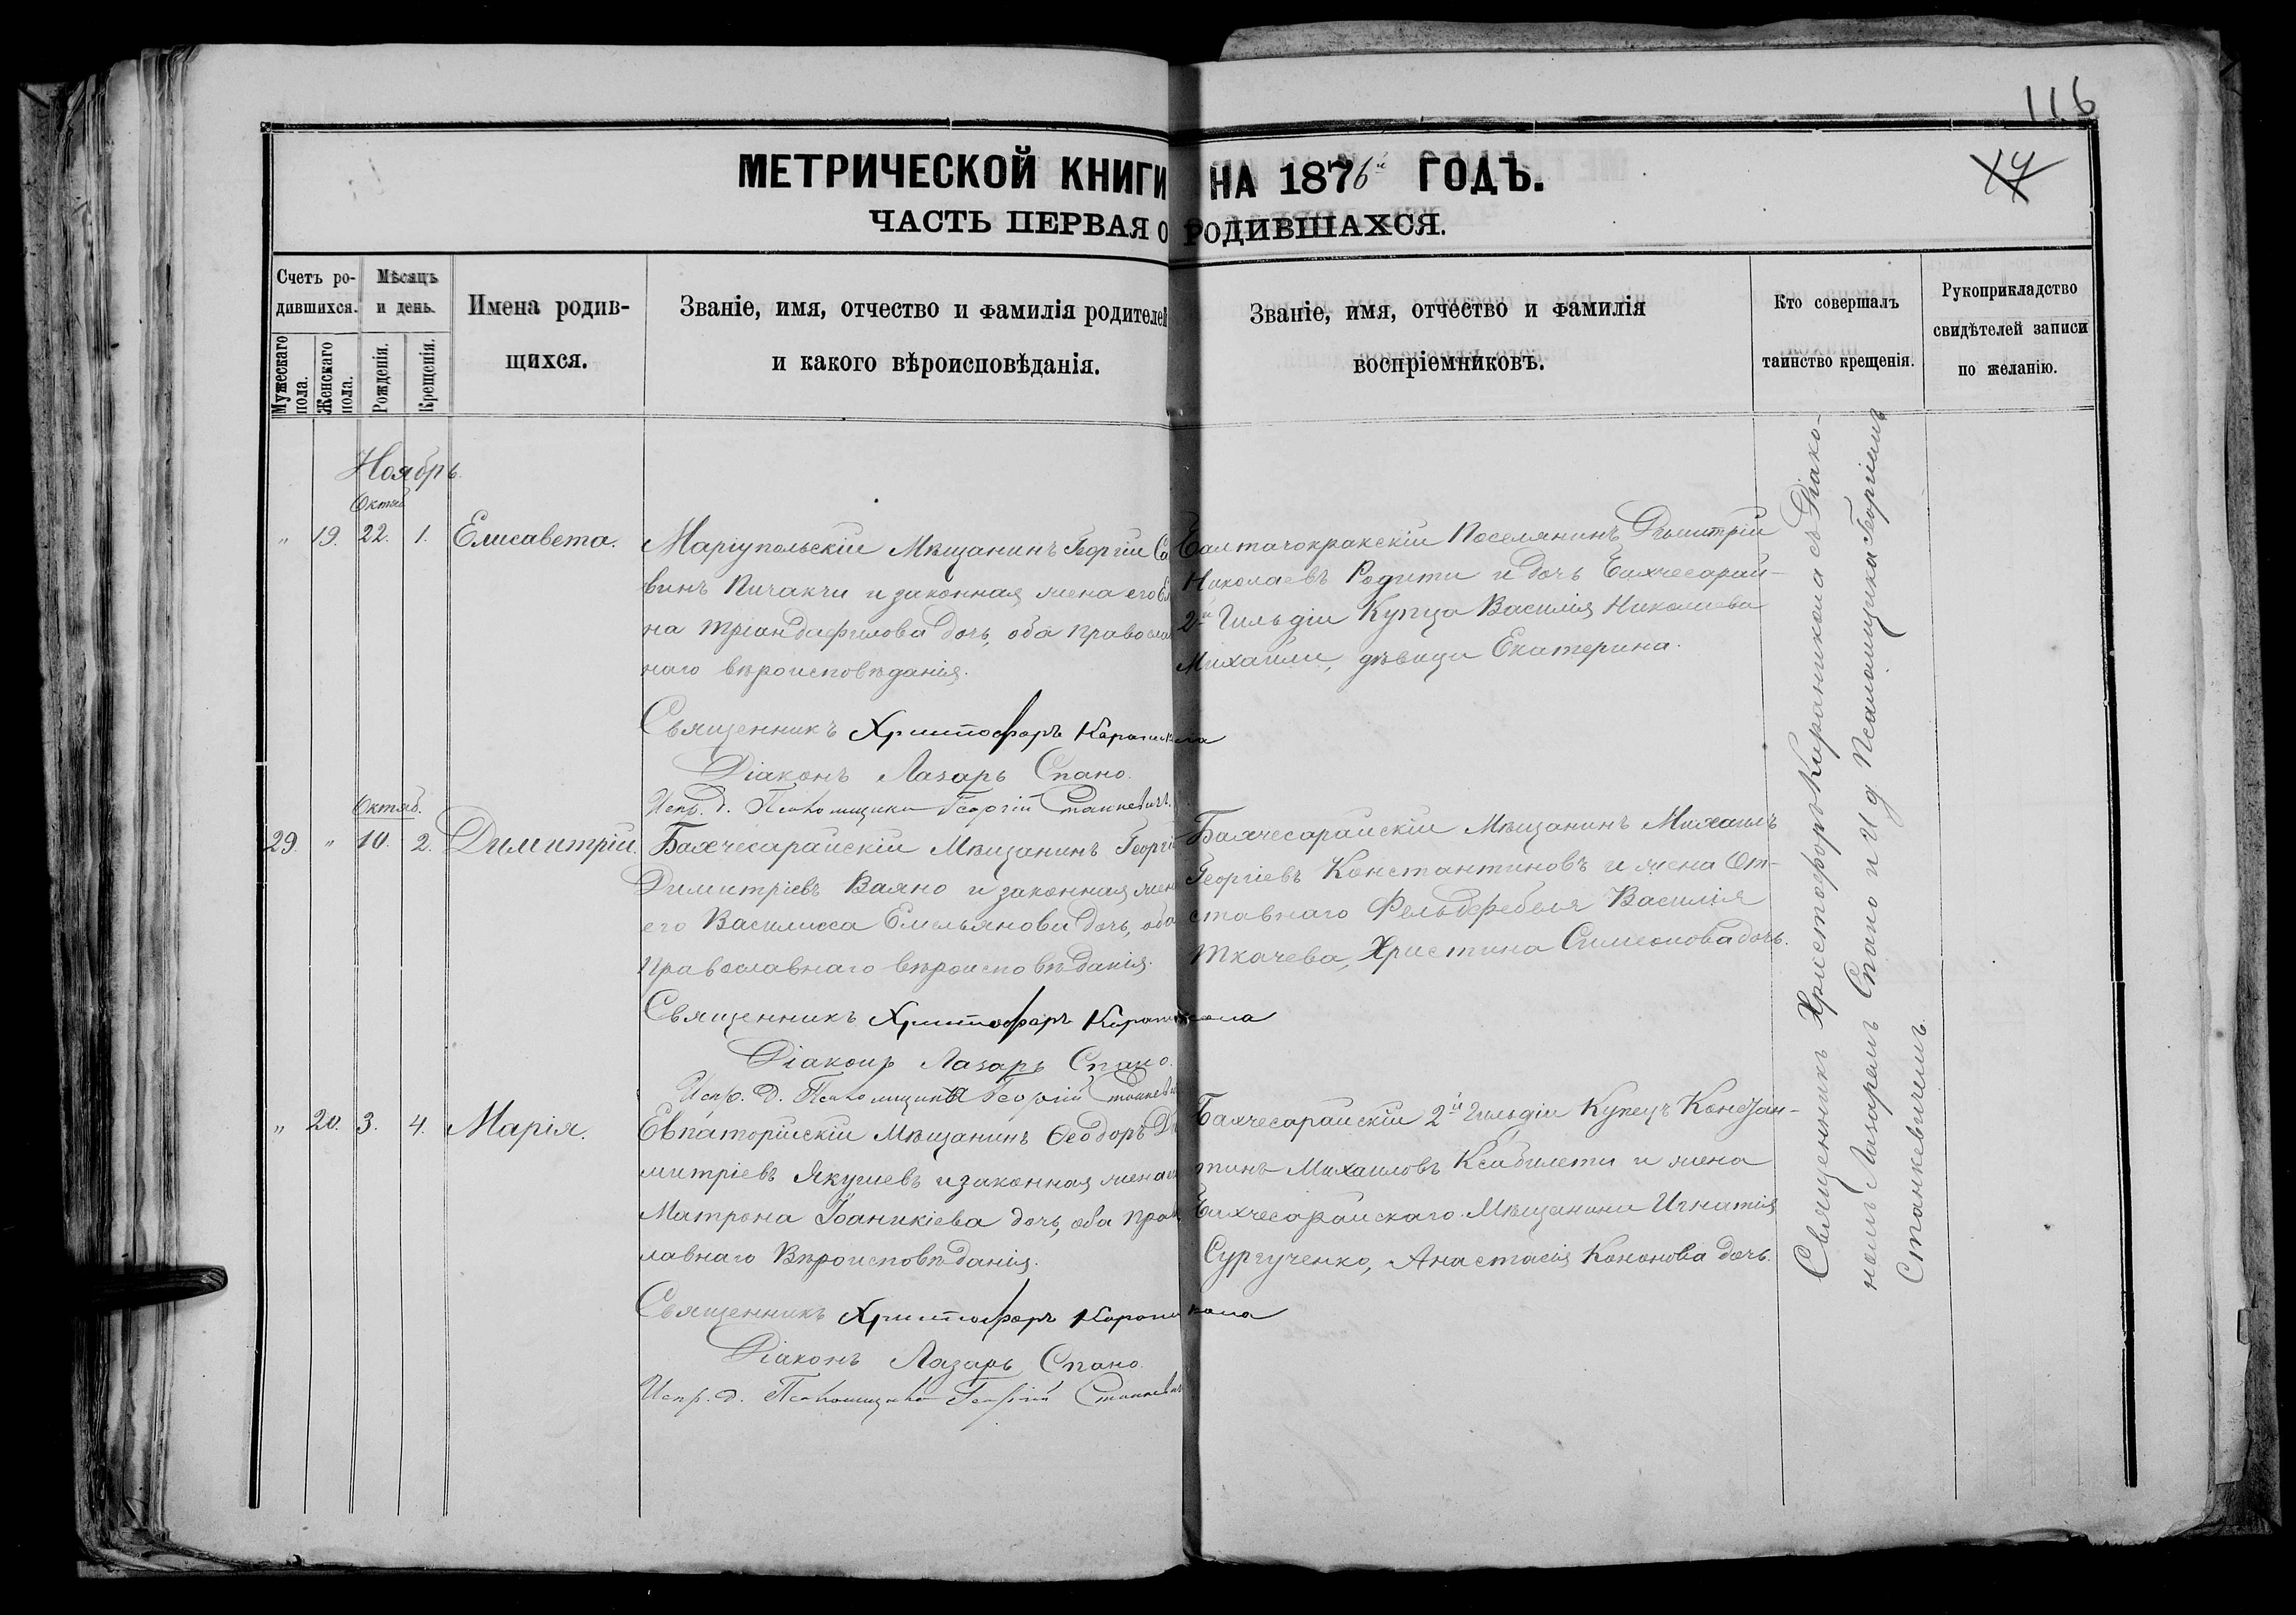 116
МЕТРИЧЕСКОЙ КНИГИ НА 1876й ГОДЪ.
ЧАСТЬ ПЕРВАЯ О РОДИВШАХСЯ.
Счетъ ро-
дившихся.
Мужескаго пола.
Женскаго пола.
Мѣсяцъ
и день.
Рожденія.
Крещенія.
Имена родив-
щихся.
Званіе, имя, отчество и фамилія родителей
и какого вѣроисповѣданія.
Званіе, имя, отчество и фамилія
воспріемниковъ.
Кто совершалъ
таинство крещенія.
Рукоприкладство
свидѣтелей записи
по желанію.
Ноябрь.
Октяб
" 19. 22. 1. Елисавета.
Маріупольскій Мѣщанинъ Георгій Са
винъ Пичакчи и законная жена его
на Тріандафилова дочь, оба православ
наго вѣроисповѣданія.
Священникъ Христофоръ Караникола
Діаконъ Лазарь Спано.
Испр. д. Псаломщика Георгій Станкевичъ.
Поселянинъ Дмитрій
Николаевъ Родити и дочь Бахчесарай-
2й Гильдіи Купца Василія Николаева
Михаили, дѣвица Екатерина.
Октяб.
29. " 10. 2. Димитрій.
Бахчесарайскій Мѣщанинъ Георгій
Димитріевъ Ваяно и законная жен
его Василисса Емельянова дочь, оба
Православнаго вѣроисповѣданія.
Священникъ Христофоръ Караникола
Діаконъ Лазарь Спано.
Испр. д. Псаломщика Георгій Станкеви
Бахчесарайскій Мѣщанинъ Михаилъ
Георгіевъ Константиновъ и жена От-
ставнаго Фельдфебеля Василія
Ткачева, Христина Симеонова дочь.
" 20. 3. 4. Марія.
Евпаторійскій Мѣщанинъ Ѳеодоръ Ди
митріевъ Якушевъ и законная жена
Матрона Іоаникіева дочь, оба прав
лавнаго Вѣроисповѣданія.
Священникъ Христофоръ Караникола
Діаконъ Лазарь Спано.
Испр. д. Псаломщика Георгій Станкевич
Бахчесарайскій 2й Гильдіи Купецъ Констан-
тинъ Михаиловъ Ксабилети и жена
Бахчесарайскаго Мѣщанина Игнатія
Сургученко, Анастасія Кононова дочь.
Священникъ Христофоръ Караникола съ Діако-
номъ Лазаремъ Спано и И. д. Псаломщика Георгіемъ
Станкевичемъ.